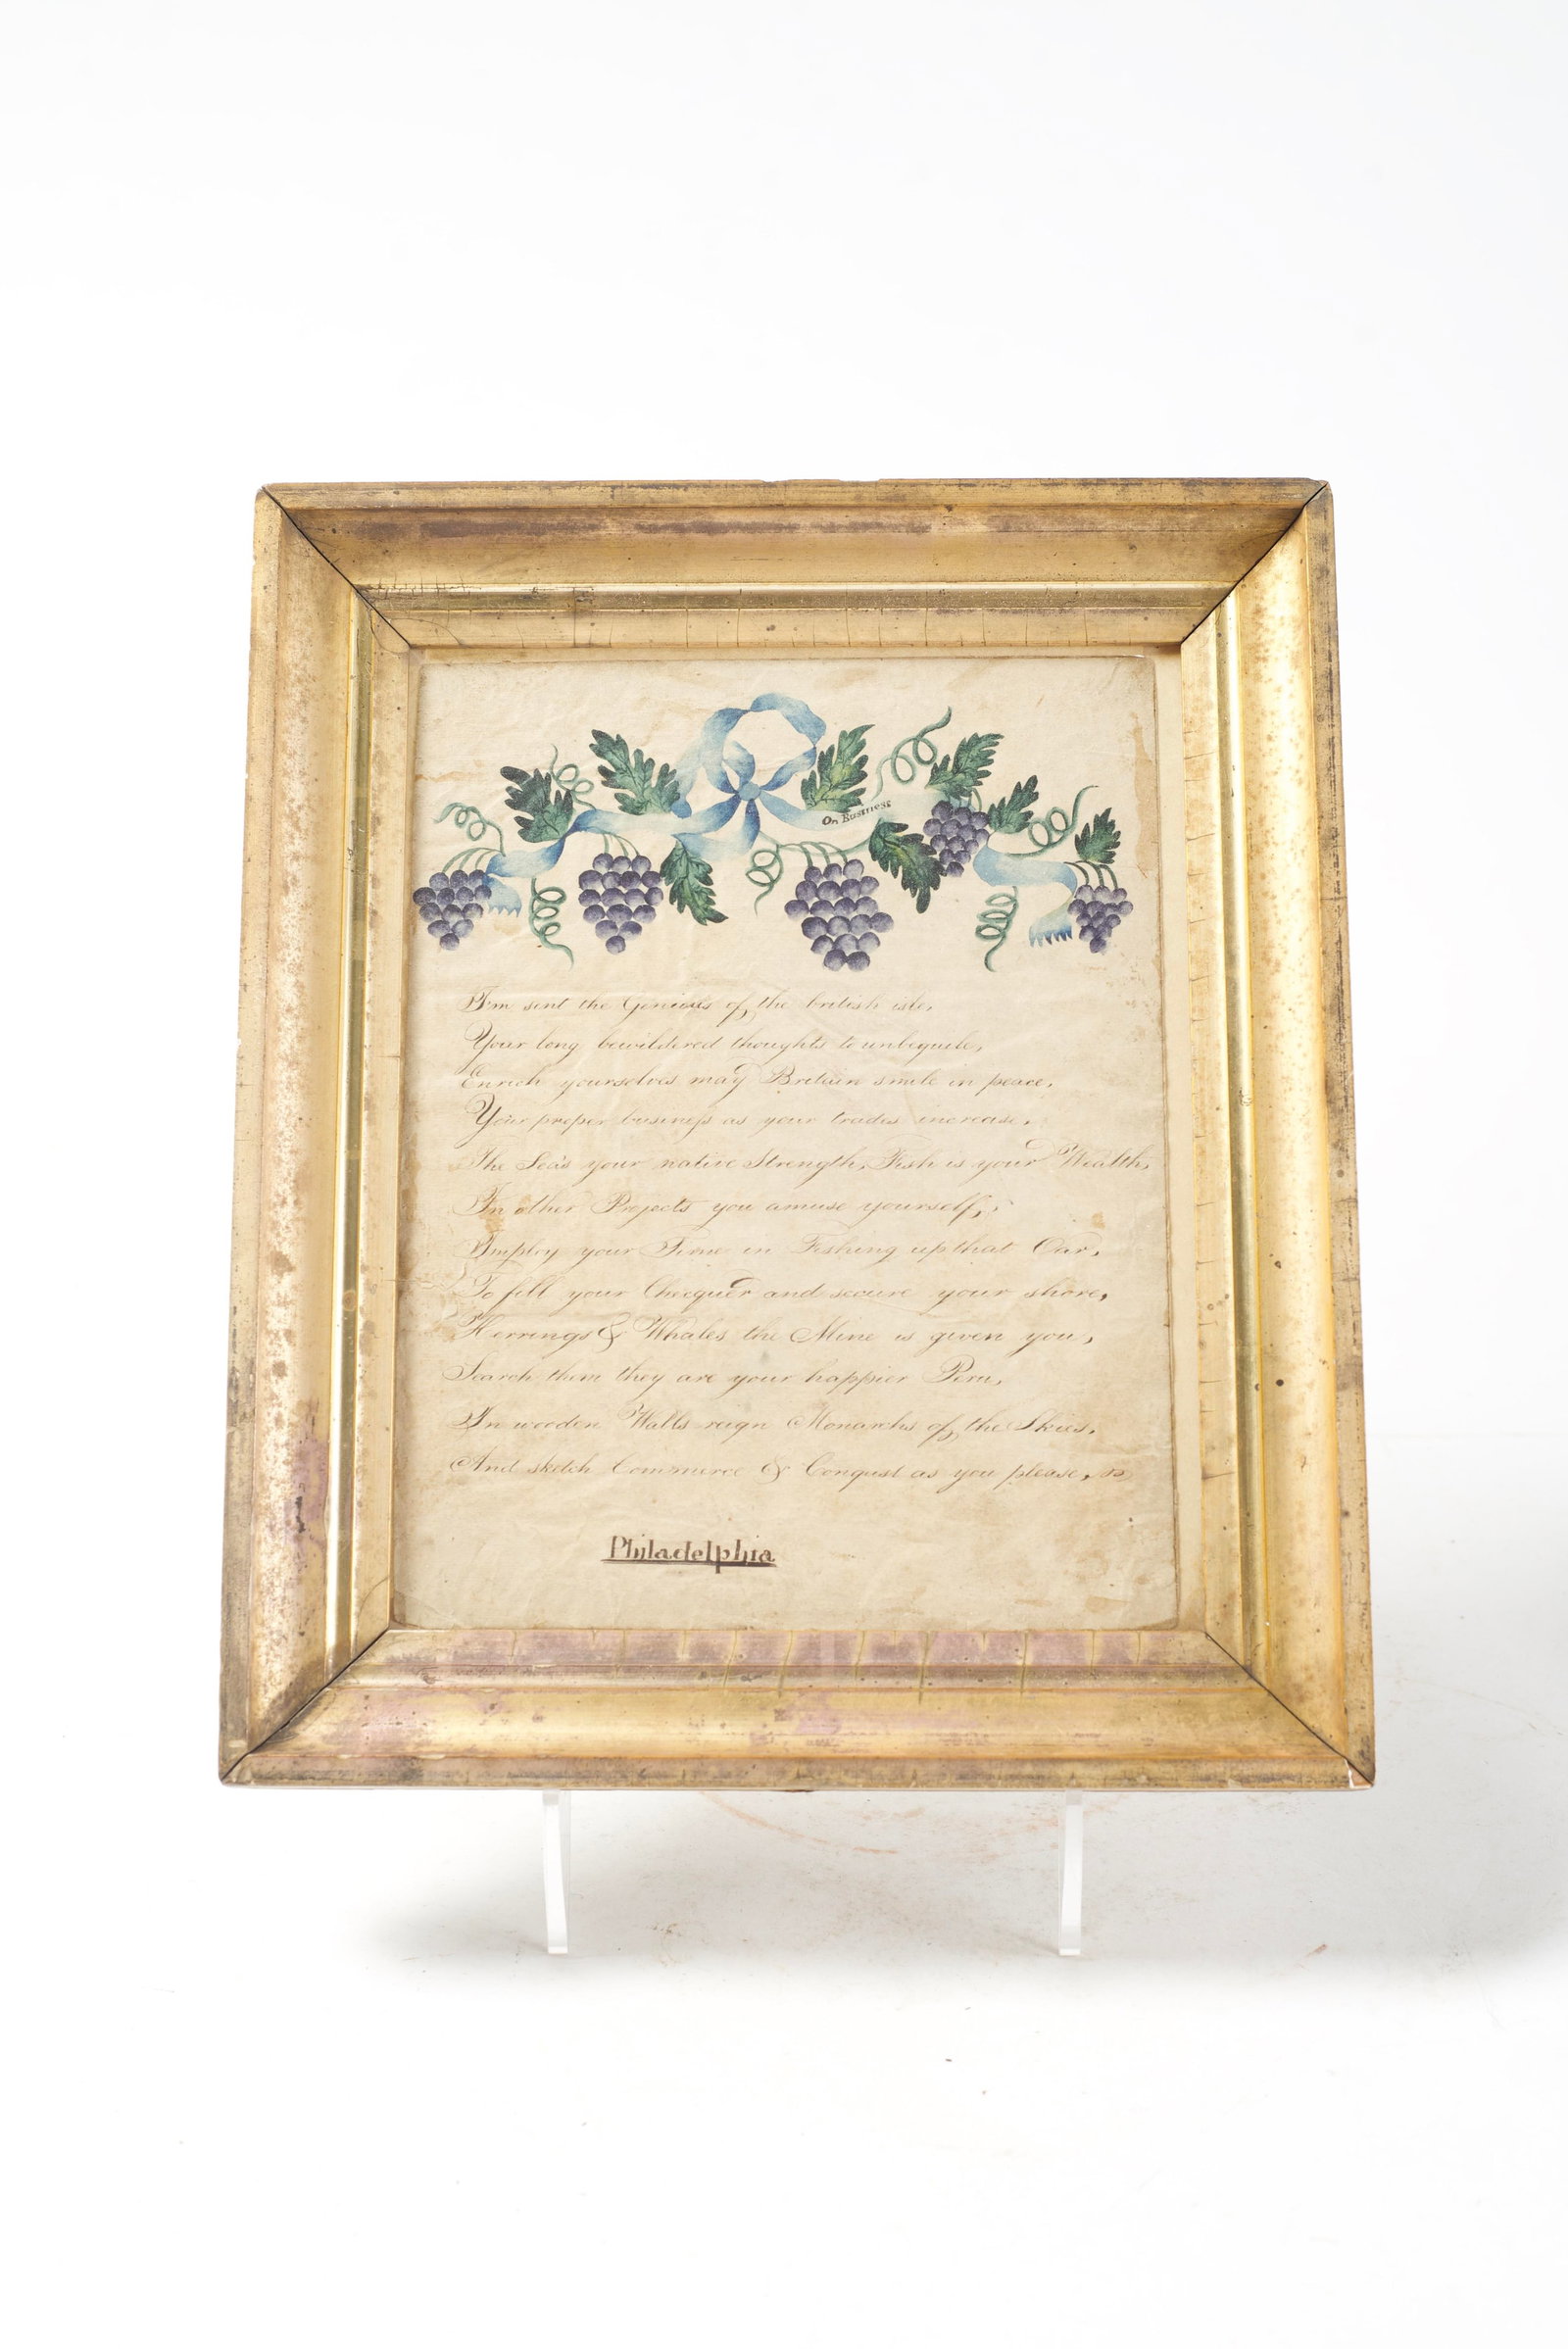 On Business
I'm sent the Genious of the british isle,
Your long bewildered thoughts to unbeguile,
Enrich yourselves may Britain smile in peace,
Your proper business as your trades increase.
The Sea's your native Strength, Fish is your Wealth,
In other Projects you amuse yourself;
Imploy your Time in Fishing up that Oar,
To fill your Checquer and secure your shore,
Herrings & Whales the Mine is given you,
Search them they are your happier Peru,
In wooden Walls reign Monarchs of the Skies,
And sketch Commerce & Conquest as you please,
Philadelphia